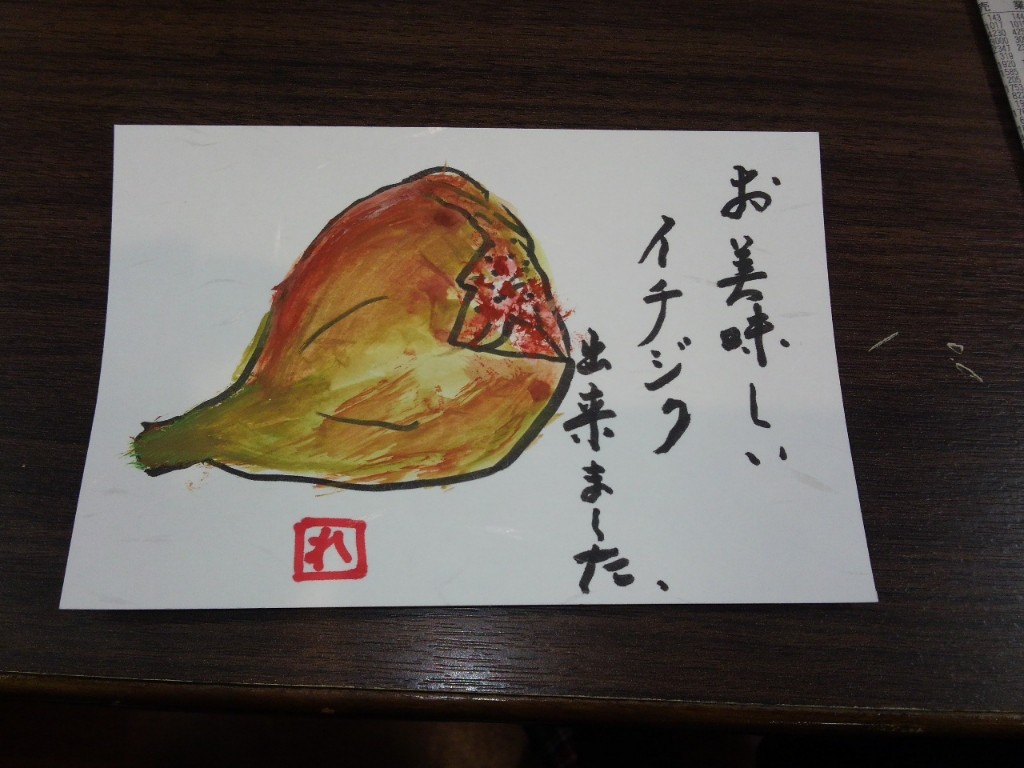 お美味しい
イチジク
出来ました、
れ